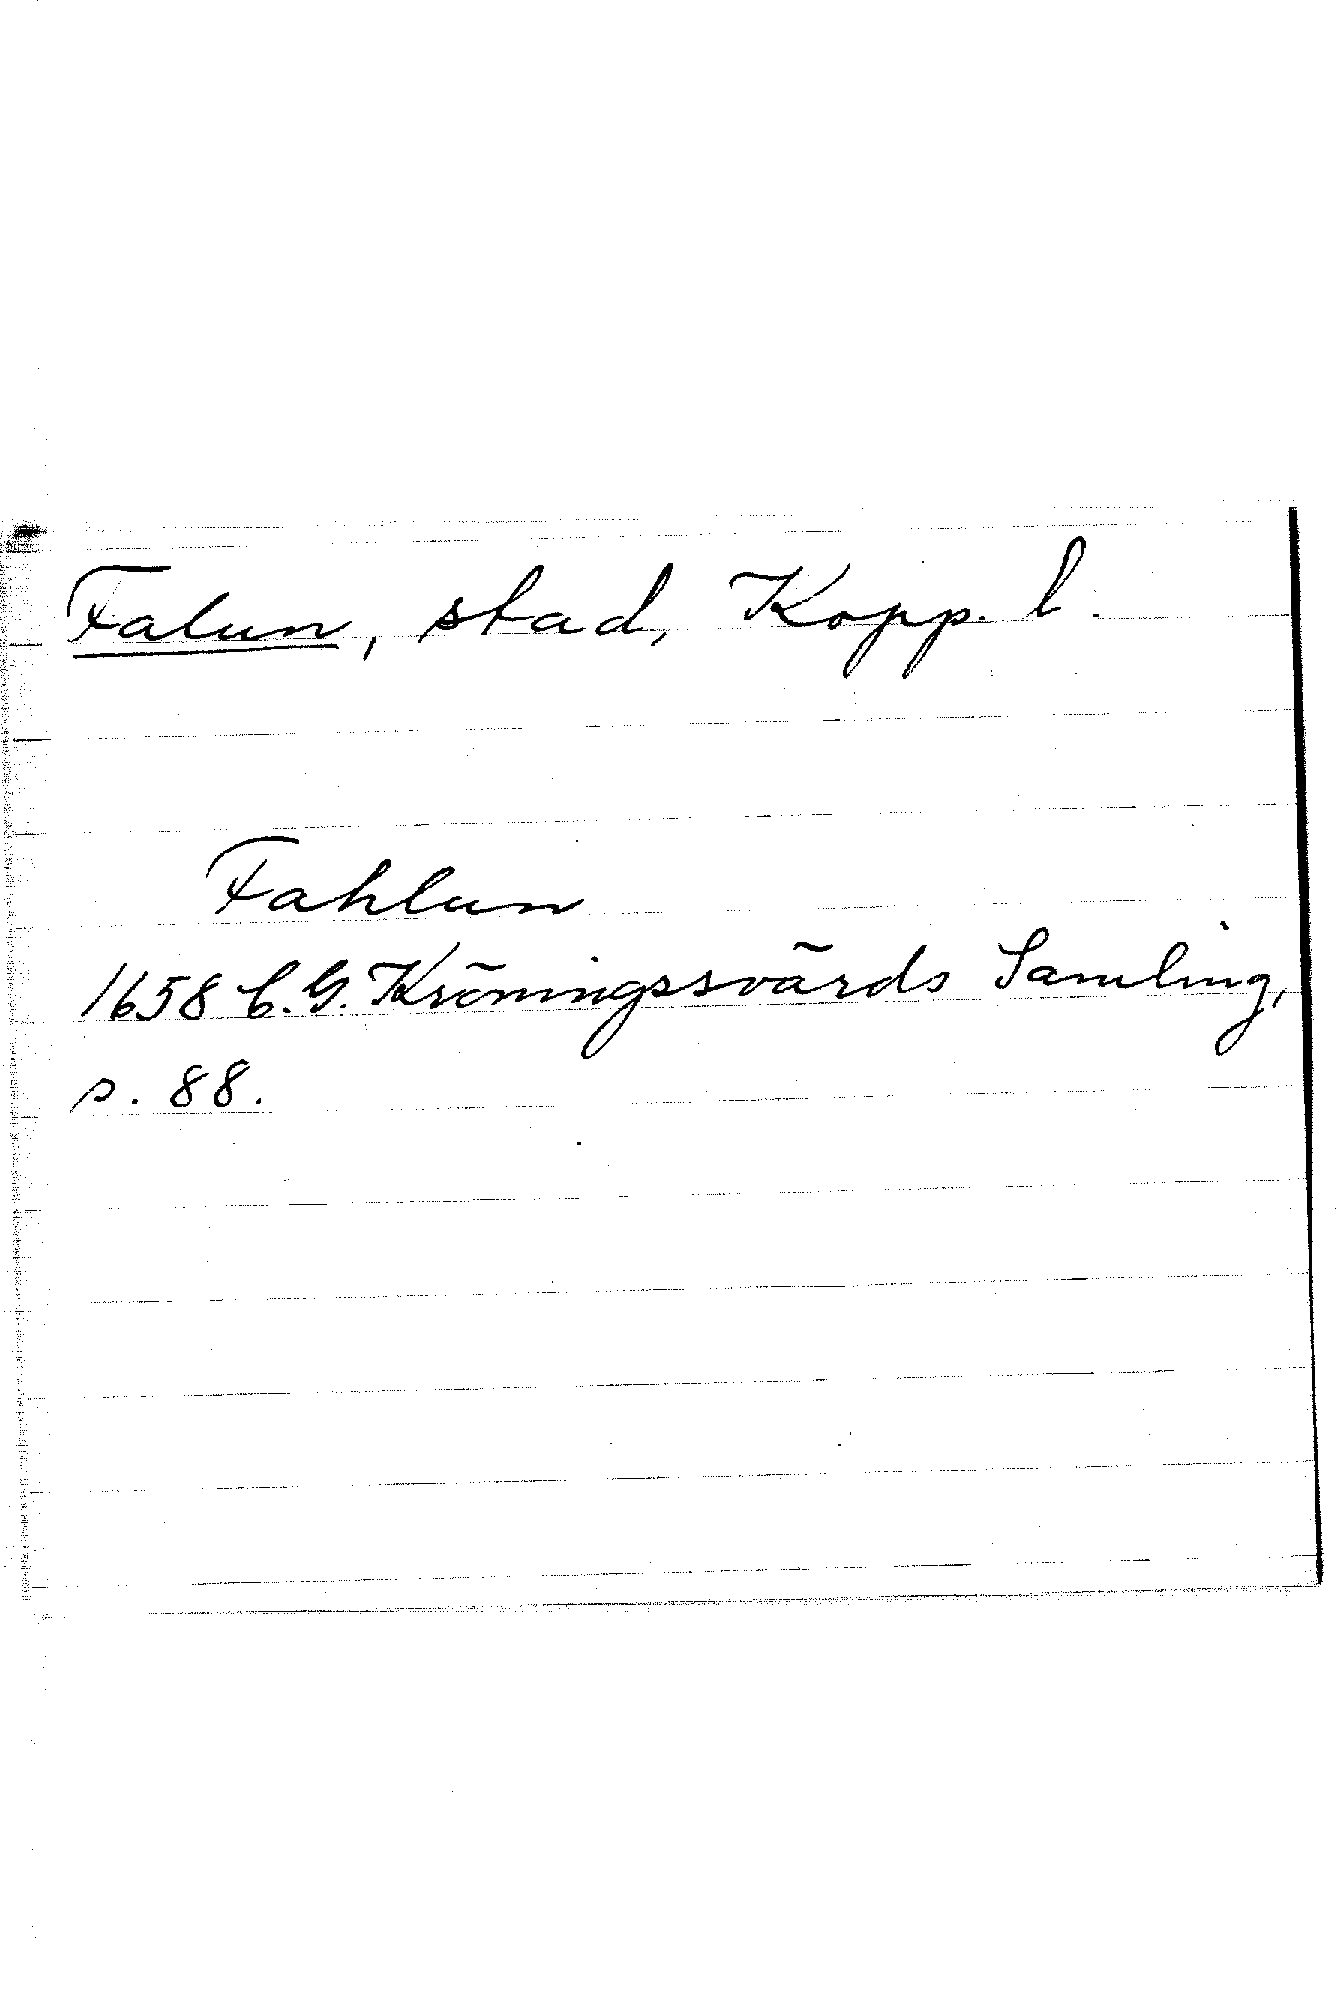 Falun, stad, Kopp. l.
Fahlun
1658 C.G. Kröningssvärds Samling,
s. 88.